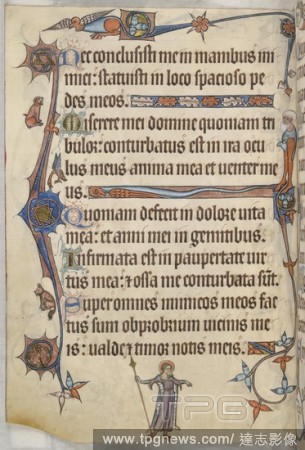 Nec conclusisti me in manibus ini
mici: statuisti in loco spacioso pe
des meos.
Miserere mei domine quoniam tri
bulor: conturbatus est in ira ocu
lus meus anima mea et venter me
us.
Quoniam defecit in dolore vita
mea: et anni mei in gemitibus.
Infirmata est in paupertate vir
tus mea: & ossa mea conturbata sūt.
Super omnes inimicos meos fac
tus sum obprobrium vicinis me
is: valde & timor notis meis.
TPG
www.tpgnews.com/達志影像